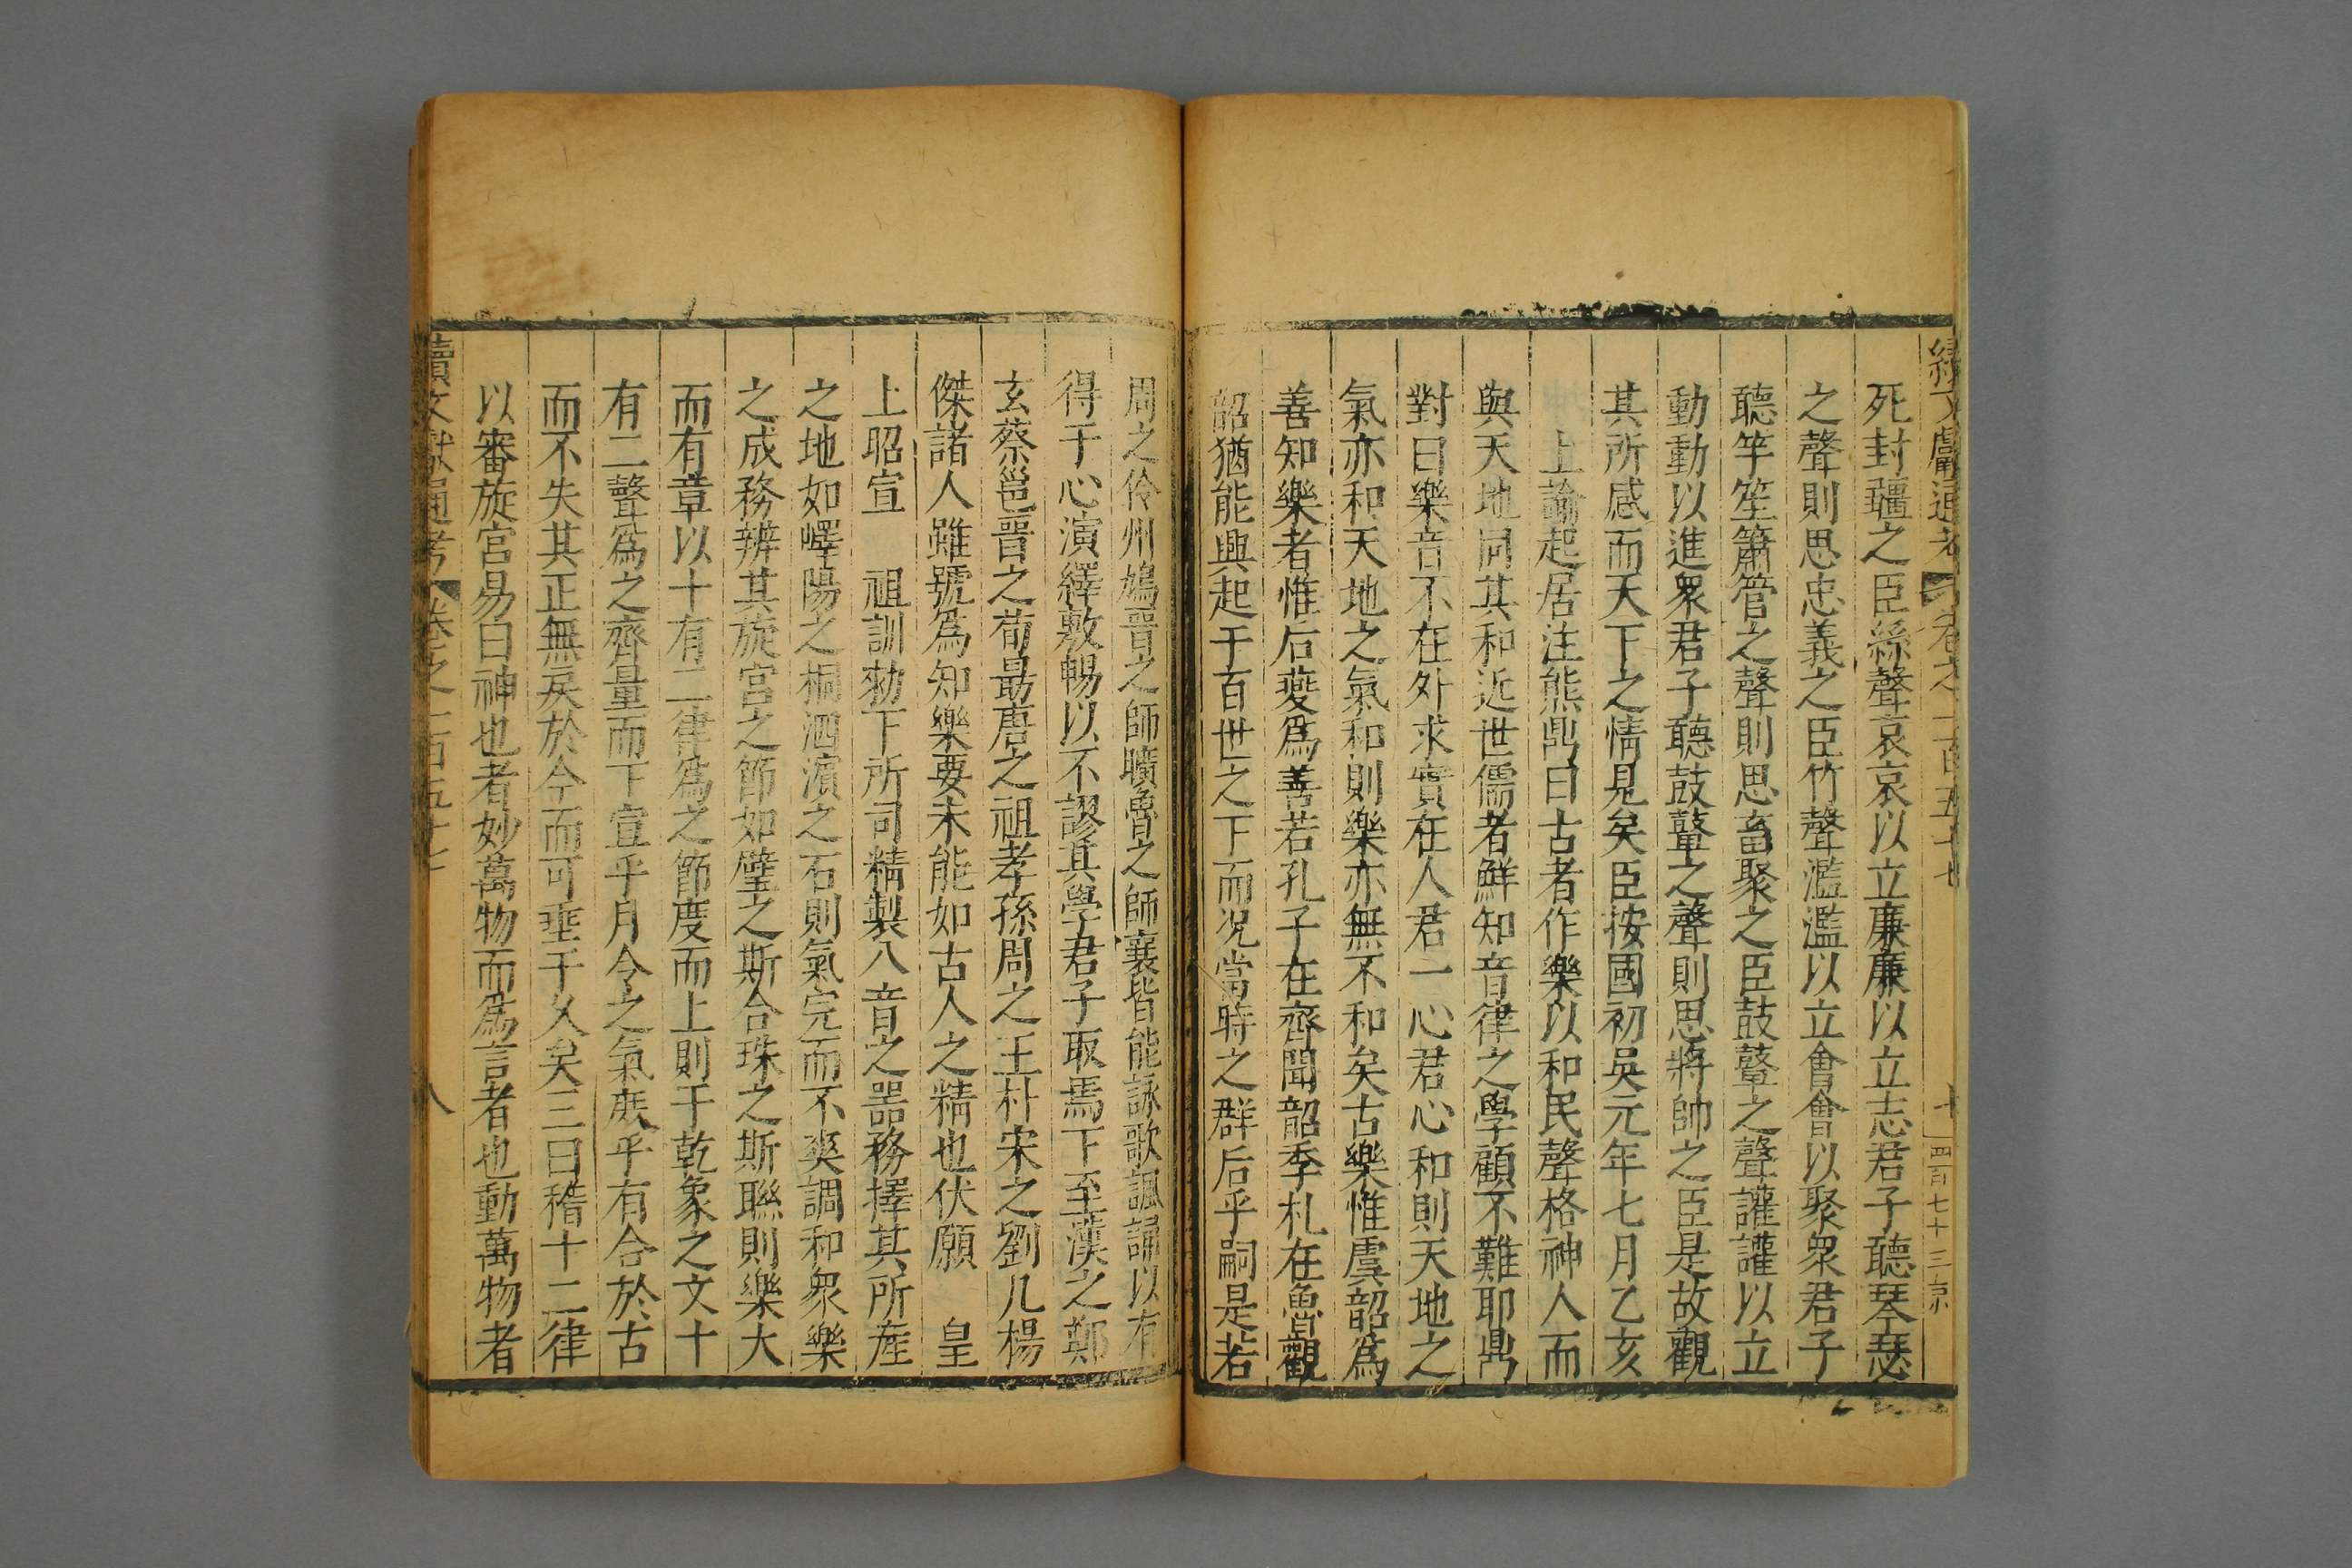 續文獻通考 卷之一百五十七
四百七十三
死封疆之臣絲聲哀哀以立廉廉以立志君子聽琴瑟
之聲則思忠義之臣竹聲濫濫以立會會以聚衆君子
聽竽笙簫管之聲則思畜聚之臣鼓鼙之聲讙讙以立
動動以進衆君子聽鼓鼙之聲則思將帥之臣是故觀
其所感而天下之情見矣臣按國初吳元年七月乙亥
上諭起居注熊鼎曰古者作樂以和民聲格神人而
與天地同其和近世儒者鮮知音律之學顧不難耶鼎
對曰樂音不在外求實在人君一心君心和則天地之
氣亦和天地之氣和則樂亦無不和矣古樂惟虞韶爲
善知樂者惟后夔爲善若孔子在齊聞韶季札在魯觀
韶猶能興起于百世之下而况當時之群后乎嗣是若
周之伶州鳩晉之師曠魯之師襄皆能詠歌諷誦以有
得于心演繹敷暢以不謬其學君子取焉下至漢之鄭
玄蔡邕晉之荀朂唐之祖孝孫周之王朴宋之劉几楊
傑諸人雖號爲知樂要未能如古人之精也伏願 皇
上昭宣 祖訓勑下所司精製八音之噐務擇其所產
之地如嶧陽之桐泗濱之石則氣完而不爽調和衆樂
之成務辨其旋宮之節如璧之斯合珠之斯聯則樂大
而有章以十有二律爲之節度而上則于乾象之文十
有二聲爲之齊量而下宣乎月令之氣庶乎有合於古
而不失其正無戾於今而可垂于久矣三曰稽十二律
以審旋宮易曰神也者妙萬物而爲言者也動萬物者
續文獻通考 卷之一百五十七 八